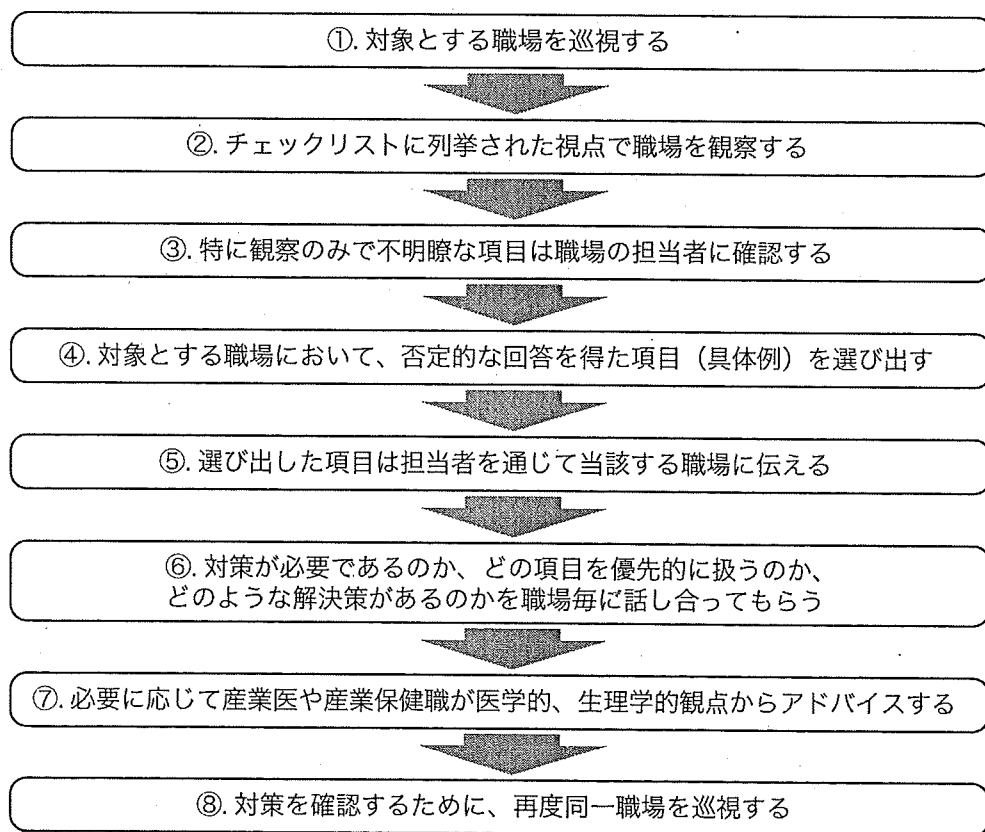 ①. 対象とする職場を巡視する
②. チェックリストに列挙された視点で職場を観察する
③. 特に観察のみで不明瞭な項目は職場の担当者に確認する
④. 対象とする職場において、否定的な回答を得た項目（具体例）を選び出す
⑤. 選び出した項目は担当者を通じて当該する職場に伝える
⑥. 対策が必要であるのか、どの項目を優先的に扱うのか、
どのような解決策があるのかを職場毎に話し合ってもらう
⑦. 必要に応じて産業医や産業保健職が医学的、生理学的観点からアドバイスする
⑧. 対策を確認するために、再度同一職場を巡視する